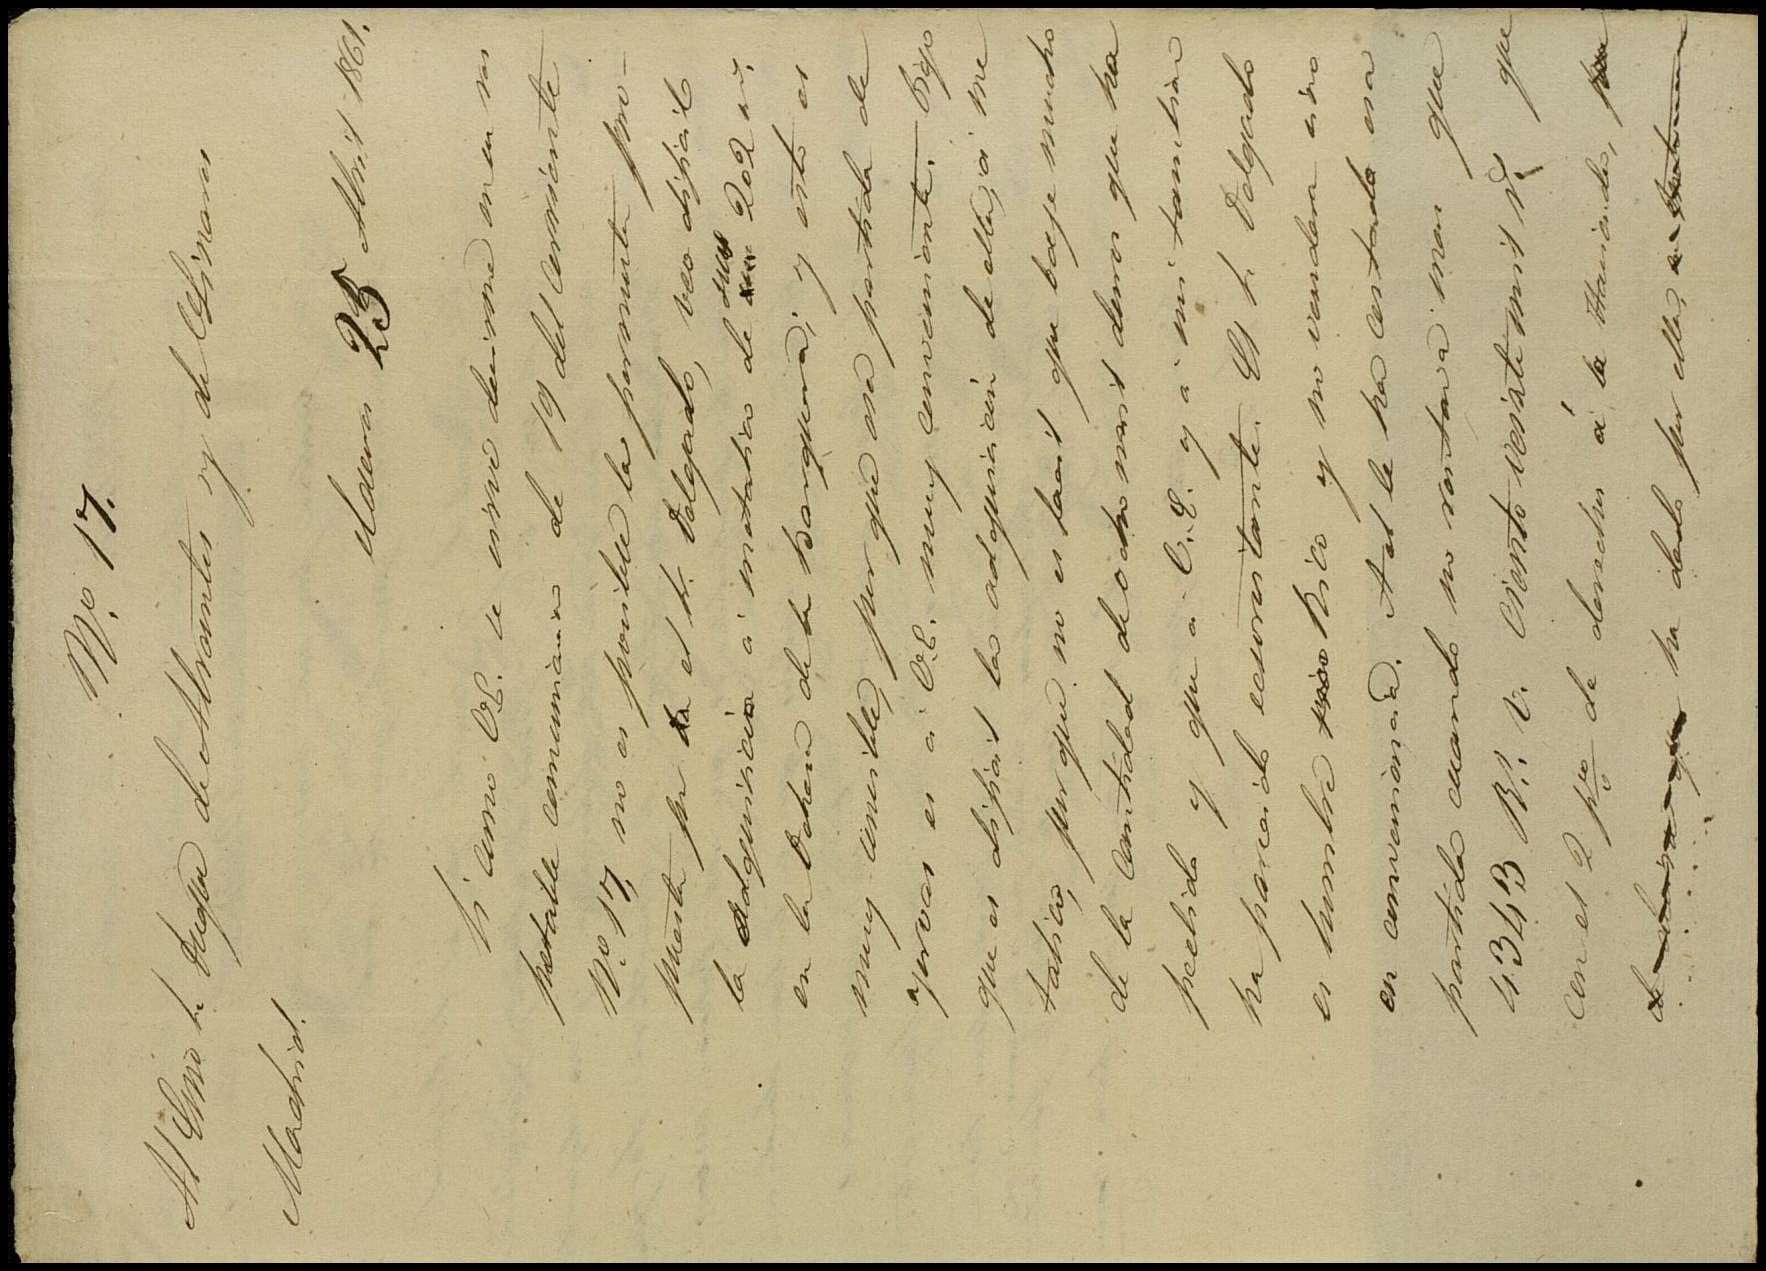 Nº. 17.
Al Exmo Sr. Duque de Abrantes y de Linares
Madrid.
Nava 25 Abril 1861.
Si como V.E. se sirve decirme en su res
petable comunicacion de 19 del corriente
Nº. 17, no es posible la permuta pro-
puesta por el Sr. Delegado, veo dificil
la adquisicion á metalico de sus 202 
en la Dehesa de la Barquera; y esto es
muy sensible, porque esa partida de
yervas es á V.E. muy conveniente. Digo
que es dificil la adquisicion de ellas, á me
talico, porque no es facil que baje mucho
de la cantidad de ocho mil duros que ha
pedido y que a V.E. y á mi tambien
ha parecido ecsorvitante. El Sr. Delegado
es hombre rico y no vendera sino
en conveniencia. A el le ha costado esa
partida cuando no rentava mas que
4343 R.s v. ciento veinte mil r.s que
con el 2 p% de derechos á la Hacienda,
ha dado por ellas